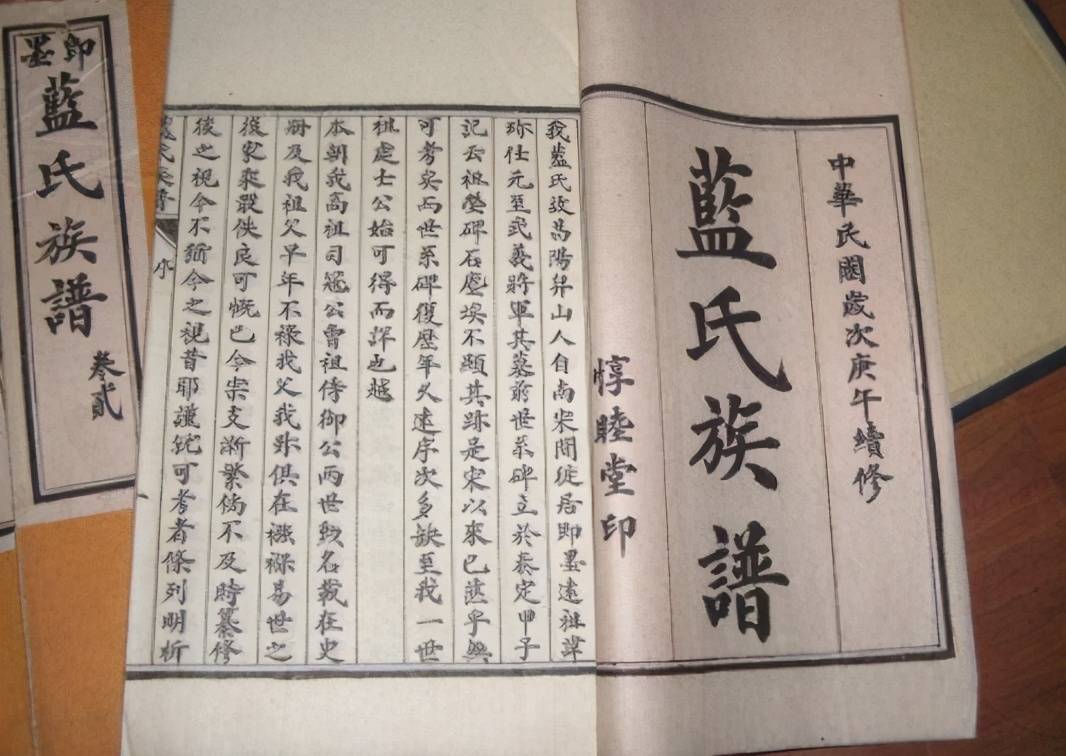 中華民國歲次庚午續修
藍氏族譜
惇睦堂印
我藍氏故昌陽昇山人自南宋間徙居即墨遠祖諱
珎仕元至武義將軍其墓前世系碑立於泰定甲子
記云祖塋碑石塵埃不顯其跡是宋以來已乎
可考矣而世系碑復歷年久遠序次多缺至我一世
祖處士公始可得而詳也越
本朝我高祖司冦公曾祖侍御公兩世勲名載在史
冊及我祖父早年不祿我父我俱在襁褓易世之
後家乘散佚良可慨已今宗支漸繁倘不及時纂修
後之視今不猶今之視昔耶謹就可考者條列明析
藍氏族譜
序
即墨
藍氏族譜
卷貳